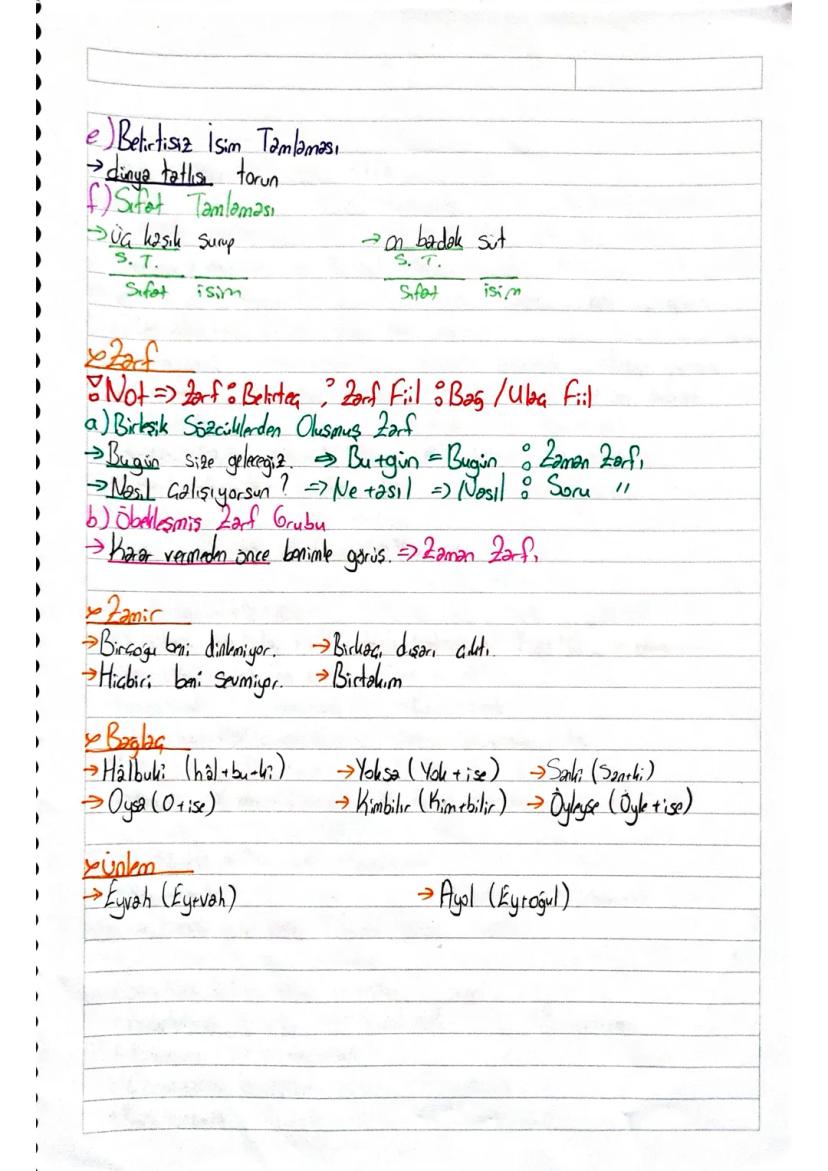 e) Belirtisiz İsim Tamlaması
→ dünya tatlısı torun
f) Sıfat Tamlaması
→ Üç kaşık şurup → on bardak süt
S. T. S. T.
Sıfat isim Sıfat isim
Zarf
Not => Zarf : Belirteç ; Zarf Fiil : Bağ / Ulaç Fiil
a) Birleşik Sözcüklerden Oluşmuş Zarf
→ Bugün size geleceğiz. => Bu+gün = Bugün : Zaman Zarfı
→ Nasıl çalışıyorsun? => Ne+asıl => Nasıl : Soru "
b) Öbekleşmiş Zarf Grubu
→ Karar vermeden önce benimle görüş. => Zaman Zarfı
Zamir
→ Birçoğu beni dinlemiyor. → Birkaçı dışarı çıktı.
→ Hiçbiri beni sevmiyor. → Birtakım
Bağlaç
→ Hâlbuki (hâl+bu+ki) → Yoksa (Yok+ise) → Sanki (San+ki)
→ Oysa (O+ise) → Kimbilir (Kim+bilir) → Öyleyse (Öyle+ise)
Ünlem
→ Eyvah (Ey+vah) → Ayol (Ey+oğul)